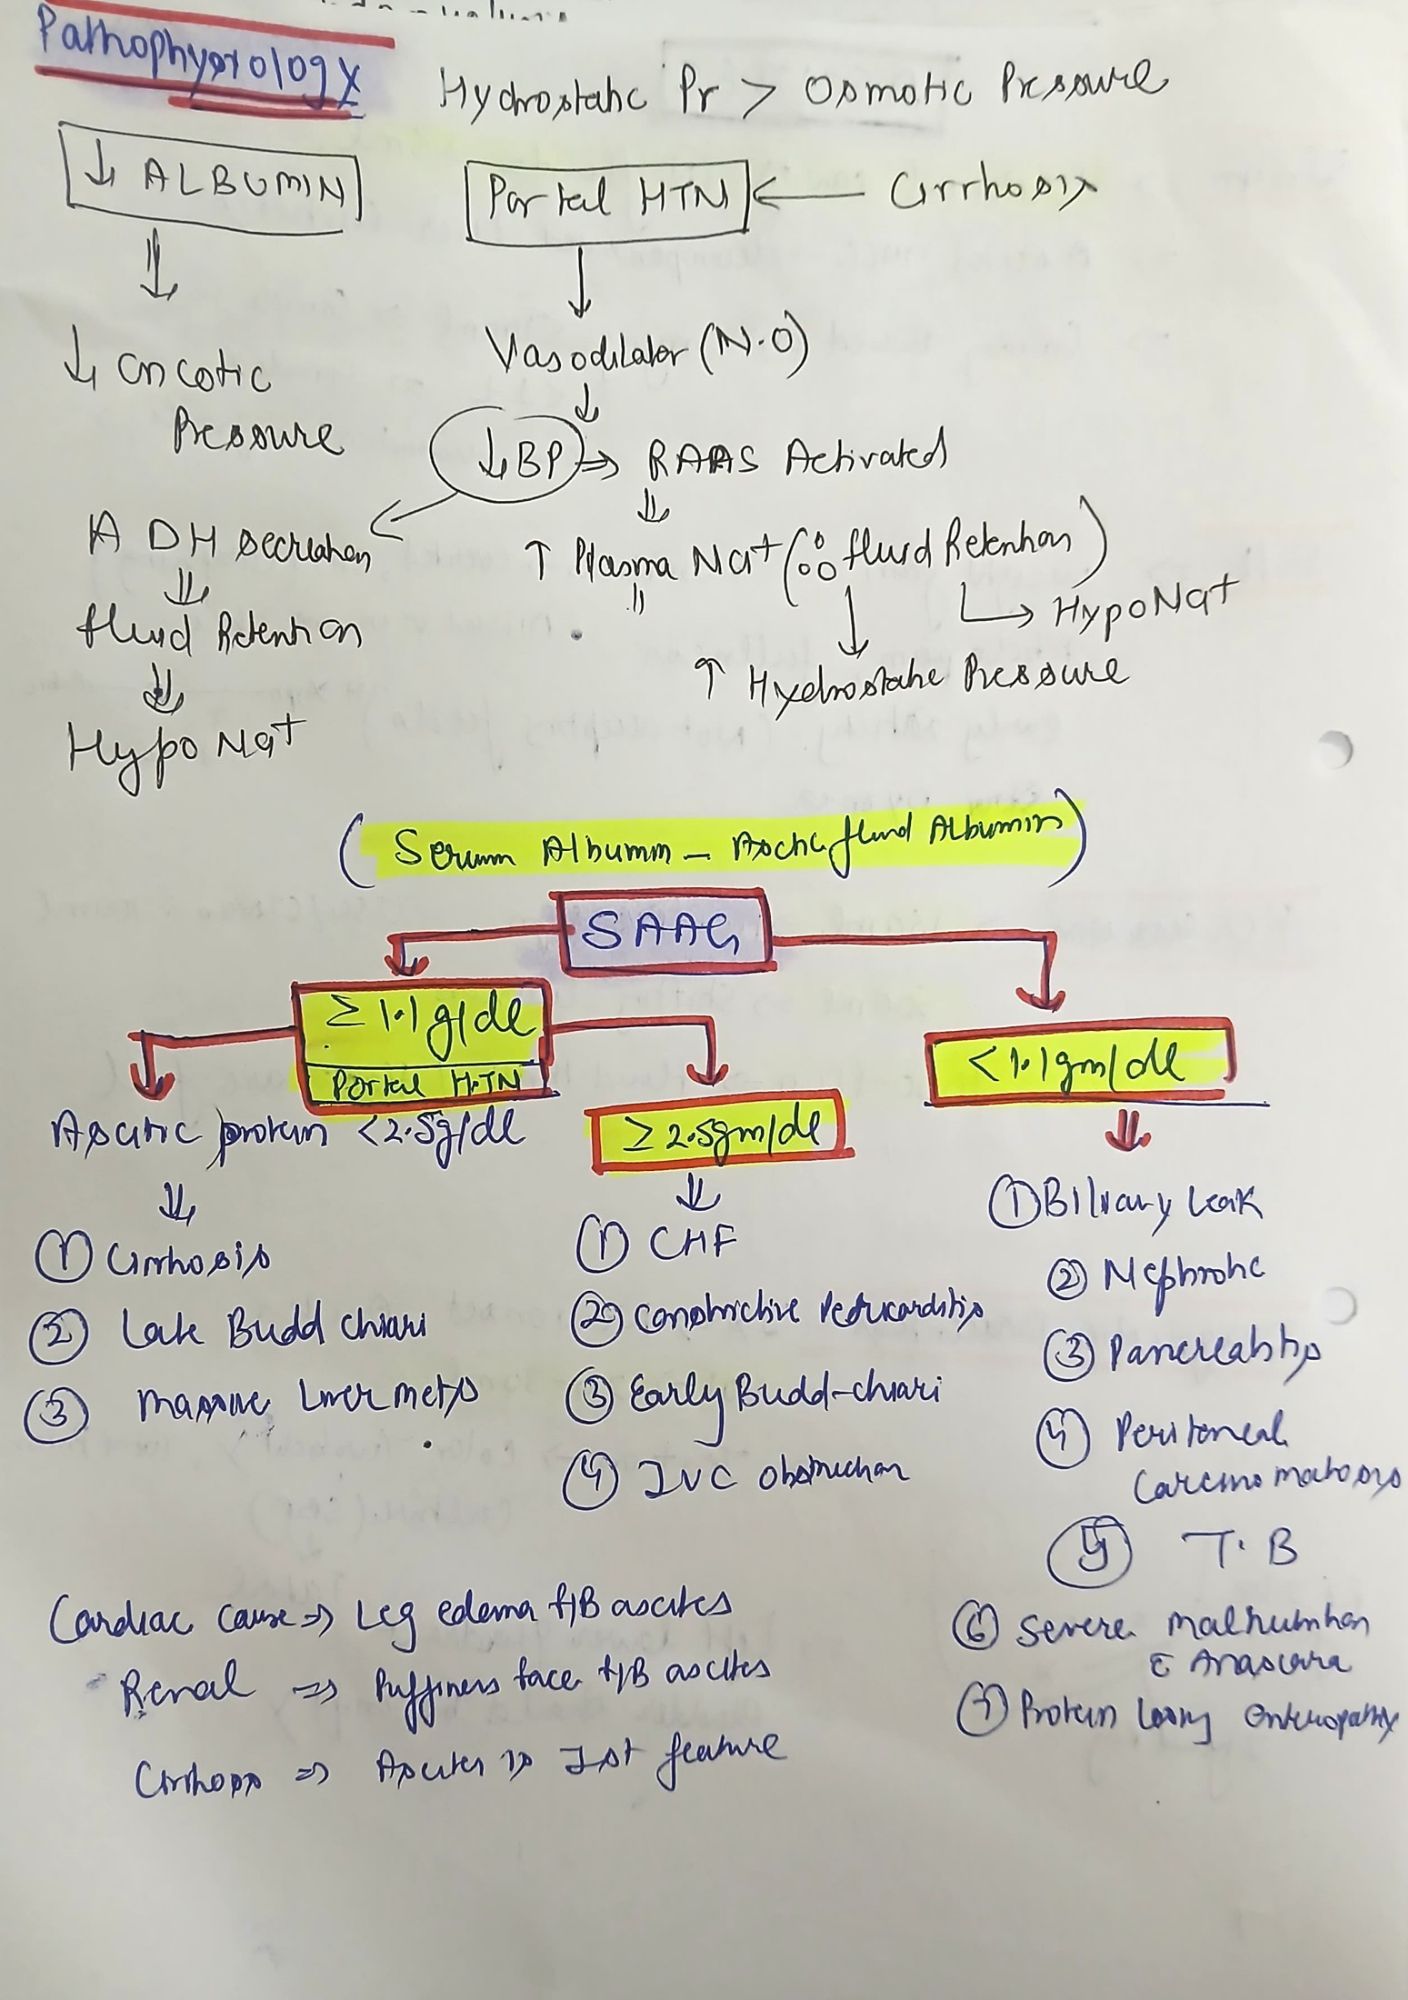 Pathophysiology
Hydrostatic Pr > Osmotic Pressure
↓ ALBUMIN
Portal HTN ← Cirrhosis
⇓
↓
↓ oncotic
Pressure
Vasodilator (N.O)
↓
↓BP ⇒ RAAS Activated
⇓
ADH secretion
↑ Plasma Na+ (∴ fluid Retention)
⇓
fluid Retention
↳ HypoNa+
⇓
↑ Hydrostatic Pressure
Hypo Na+
(Serum Albumin – Ascitic fluid Albumin)
SAAG
≥ 1.1 g/dl
Portal HTN
< 1.1 gm/dl
Ascitic protein < 2.5g/dl
≥ 2.5gm/dl
⇓
⇓
⇓
① Cirrhosis
② Late Budd chiari
③ Massive Liver mets
① CHF
② Constrictive Pericarditis
③ Early Budd-chiari
④ IVC obstruction
① Biliary leak
② Nephrotic
③ Pancreatitis
④ Peritoneal
Carcinomatosis
⑤ T.B
⑥ Severe malnutrition
c̄ Anasarca
⑦ Protein losing enteropathy
Cardiac cause ⇒ Leg edema f/B ascites
Renal ⇒ Puffiness face f/B ascites
Cirrhosis ⇒ Ascites is Ist feature